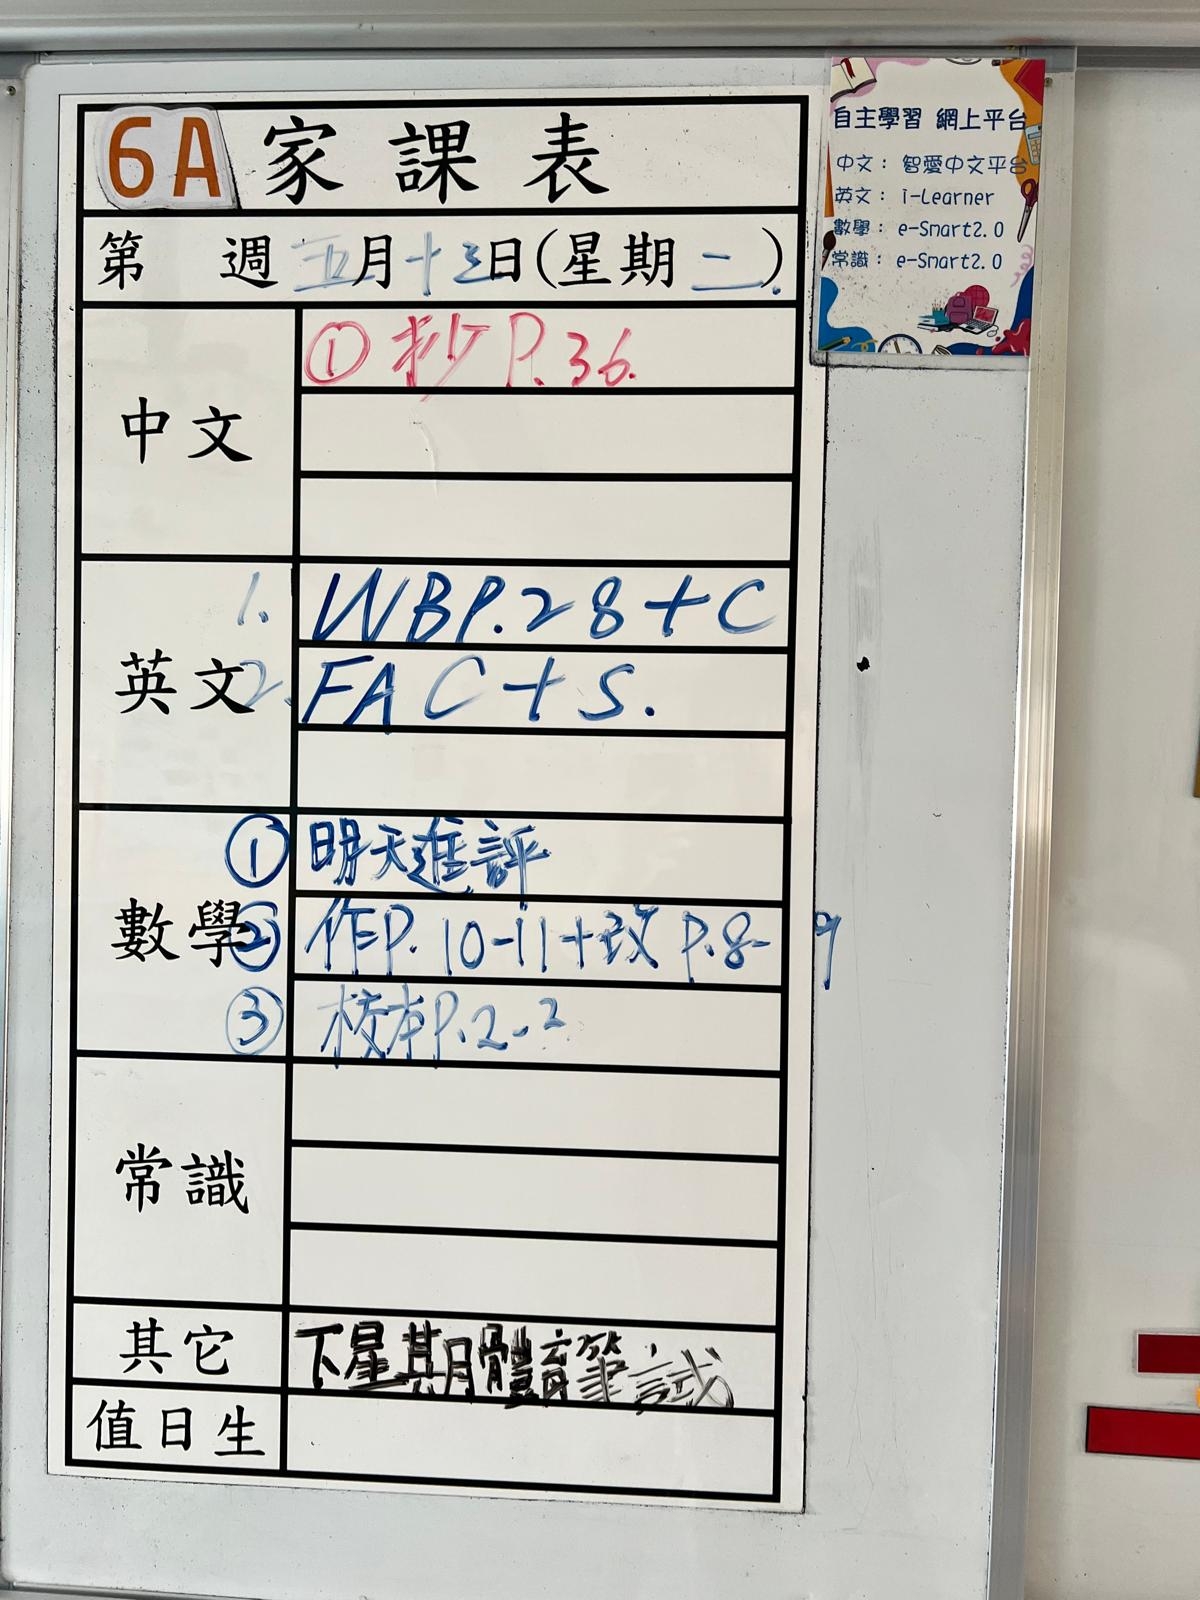 6A 家課表
第 週 五月十三日(星期二)
中文
① 抄 P.36.
英文
1. WBP.28+C
2. FAC+S.
數學
① 明天進評
② 作P.10-11+改 P.8-9
③ 校本P.2-2
常識
其它
下星期體育筆試
值日生
自主學習 網上平台
中文： 智愛中文平台
英文： i-Learner
數學： e-Smart2.0
常識： e-Smart2.0